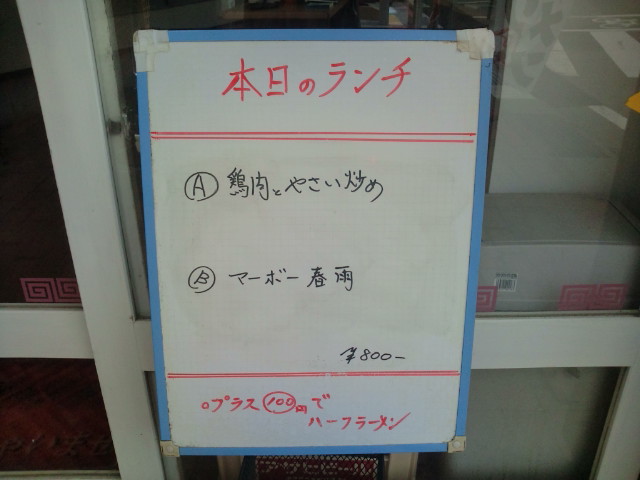 本日のランチ
Ⓐ 鶏肉とやさい炒め
Ⓑ マーボー春雨
¥800-
○プラス100円で
ハーフラーメン